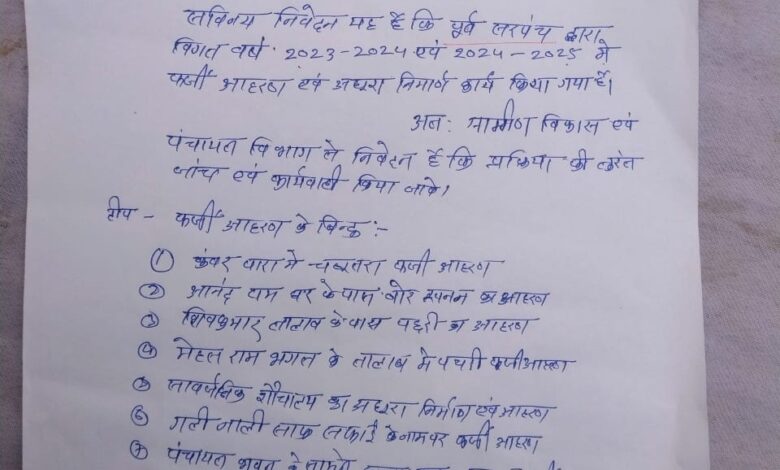 सविनय निवेदन यह है कि पूर्व सरपंच द्वारा
विगत वर्ष 2023-2024 एवं 2024-2025 में
फर्जी आहरण एवं अधुरा निर्माण कार्य किया गया है।
अतः ग्रामीण विकास एवं
पंचायत विभाग से निवेदन है कि प्रक्रिया की तुरंत
जांच एवं कार्यवाही किया जावे।
टीप - फर्जी आहरण के बिन्दु :-
① कंवर पारा में चबुतरा फर्जी आहरण
② आनंद राम घर के पास बोर खनन का आहरण
③ शिवकुमार तालाब के पास पचरी का आहरण
④ मेहत्त राम भगत के तालाब में पचरी फर्जी आहरण
⑤ सार्वजनिक शौचालय का अधुरा निर्माण एवं आहरण
⑥ गली नाली साफ सफाई के नाम पर फर्जी आहरण
⑦ पंचायत भवन के सामने